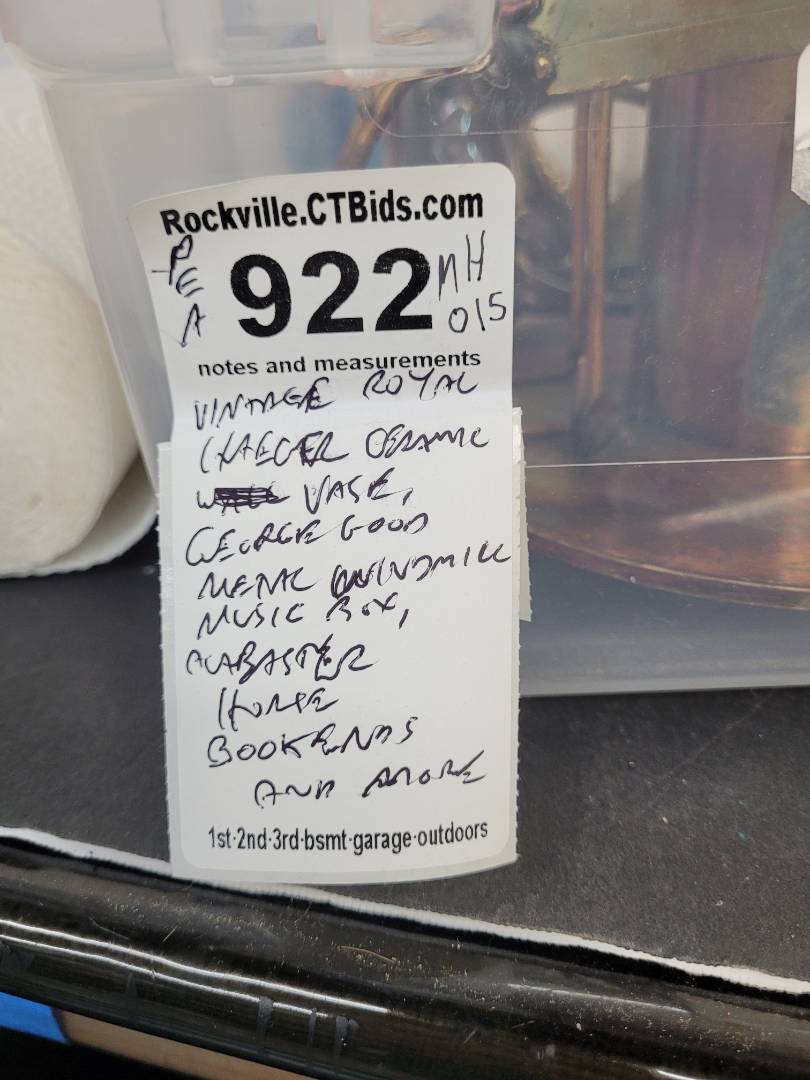 Rockville.CTBids.com
922
MH
015
notes and measurements
VINTAGE ROYAL
HAEGER CERAMIC
VASE,
GEORGE GOOD
METAL WINDMILL
MUSIC BOX,
ALABASTER
HORSE
BOOKENDS
AND MORE
1st·2nd·3rd·bsmt·garage·outdoors